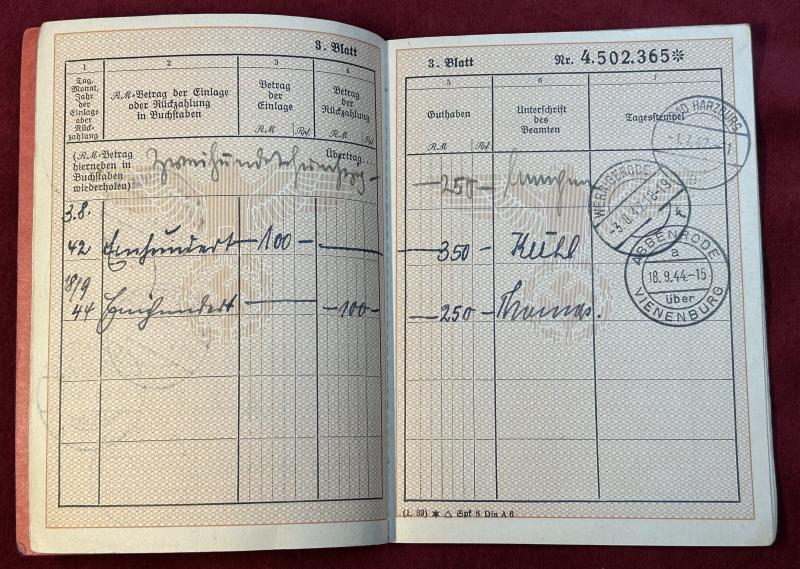 3. Blatt
1
2
3
4
Tag,
Monat,
Jahr
der
Einlage
oder
Rück-
zahlung
R.M-Betrag der Einlage
oder Rückzahlung
in Buchstaben
Betrag
der
Einlage
R.M Rpf
Betrag
der
Rückzahlung
R.M Rpf
(R.M-Betrag
hierneben in
Buchstaben
wiederholen)
Übertrag...
3.8.
42 Einhundert — 100 —
18/9
44 Einhundert — 100 —
3. Blatt Nr. 4.502.365*
5
6
7
Guthaben
R.M Rpf
Unterschrift
des
Beamten
Tagesstempel
BAD HARZBURG
— 250 —
WERNIGERODE
-3.8.42.18-19
— 350 — Kühl
ABBENRODE
a
18.9.44-15
über
VIENENBURG
— 250 — Thomas.
(1. 39) * △ Spf 8 Din A 6